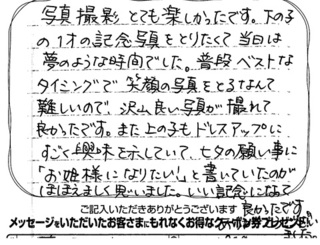 写真撮影 とても楽しかったです。下の子
の1才の記念写真をとりたくて 当日は
夢のような時間でした。普段 ベストな
タイミングで 笑顔の写真をとるなんて
難しいので、沢山良い写真が撮れて
良かったです。また上の子も ドレスアップに
すごく興味を示していて、七夕の願い事に
「お姫様になりたい」と書いていたのが
ほほえましく思いました。いい記念になって
良かったです
ご記入いただきありがとうございます
メッセージをいただいたお客さまにもれなくお得なクーポン券プレゼント